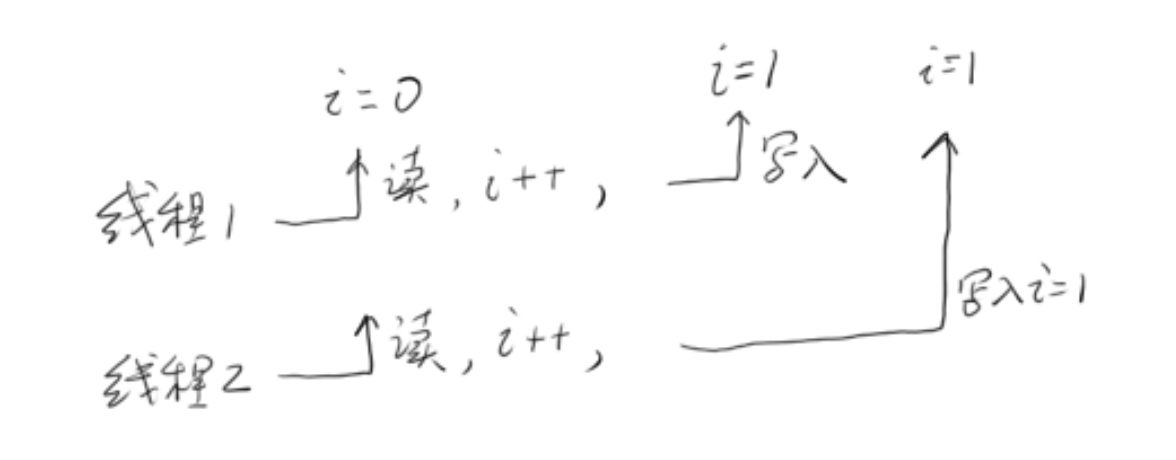 i=0 i=1 i=1
线程1 读, i++, 写入
线程2 读, i++, 写入i=1